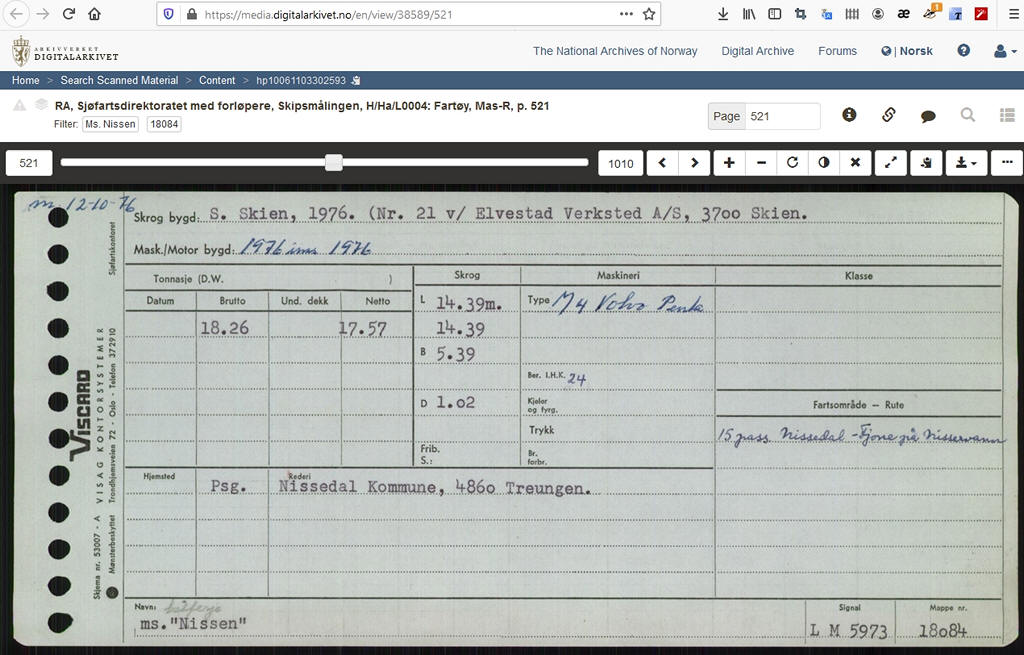 https://media.digitalarkivet.no/en/view/38589/521
ARKIVVERKET
DIGITALARKIVET
The National Archives of Norway
Digital Archive
Forums
Norsk
Home > Search Scanned Material > Content > hp10061103302593
RA, Sjøfartsdirektoratet med forløpere, Skipsmålingen, H/Ha/L0004: Fartøy, Mas-R, p. 521
Filter: Ms. Nissen 18084
Page 521
521
1010
m. 12-10-76
Skrog bygd: S. Skien, 1976. (Nr. 21 v/ Elvestad Verksted A/S, 37oo Skien.
Mask./Motor bygd: 1976 ims 1976
Tonnasje (D.W. )
Skrog
Maskineri
Klasse
Datum
Brutto
Und. dekk
Netto
L 14.39m.
Type M4 Volvo Penta
18.26
17.57
14.39
B 5.39
Ber. I.H.K. 24
D 1.o2
Kjeler og fyrg.
Fartsområde — Rute
Trykk
15 pass. Nissedal - Fjone på Nisservann
Frib. S.:
Br. forbr.
Hjemsted
Rederi
Psg.
Nissedal Kommune, 486o Treungen.
Sjøfartskontoret
VISCARD
VISAG KONTORSYSTEMER
Trondhjemsveien 72 - Oslo - Telefon 372910
Skjema nr. 53007 - A
Mønsterbeskyttet
Navn: bilferje
ms."Nissen"
Signal
L M 5973
Mappe nr.
18o84